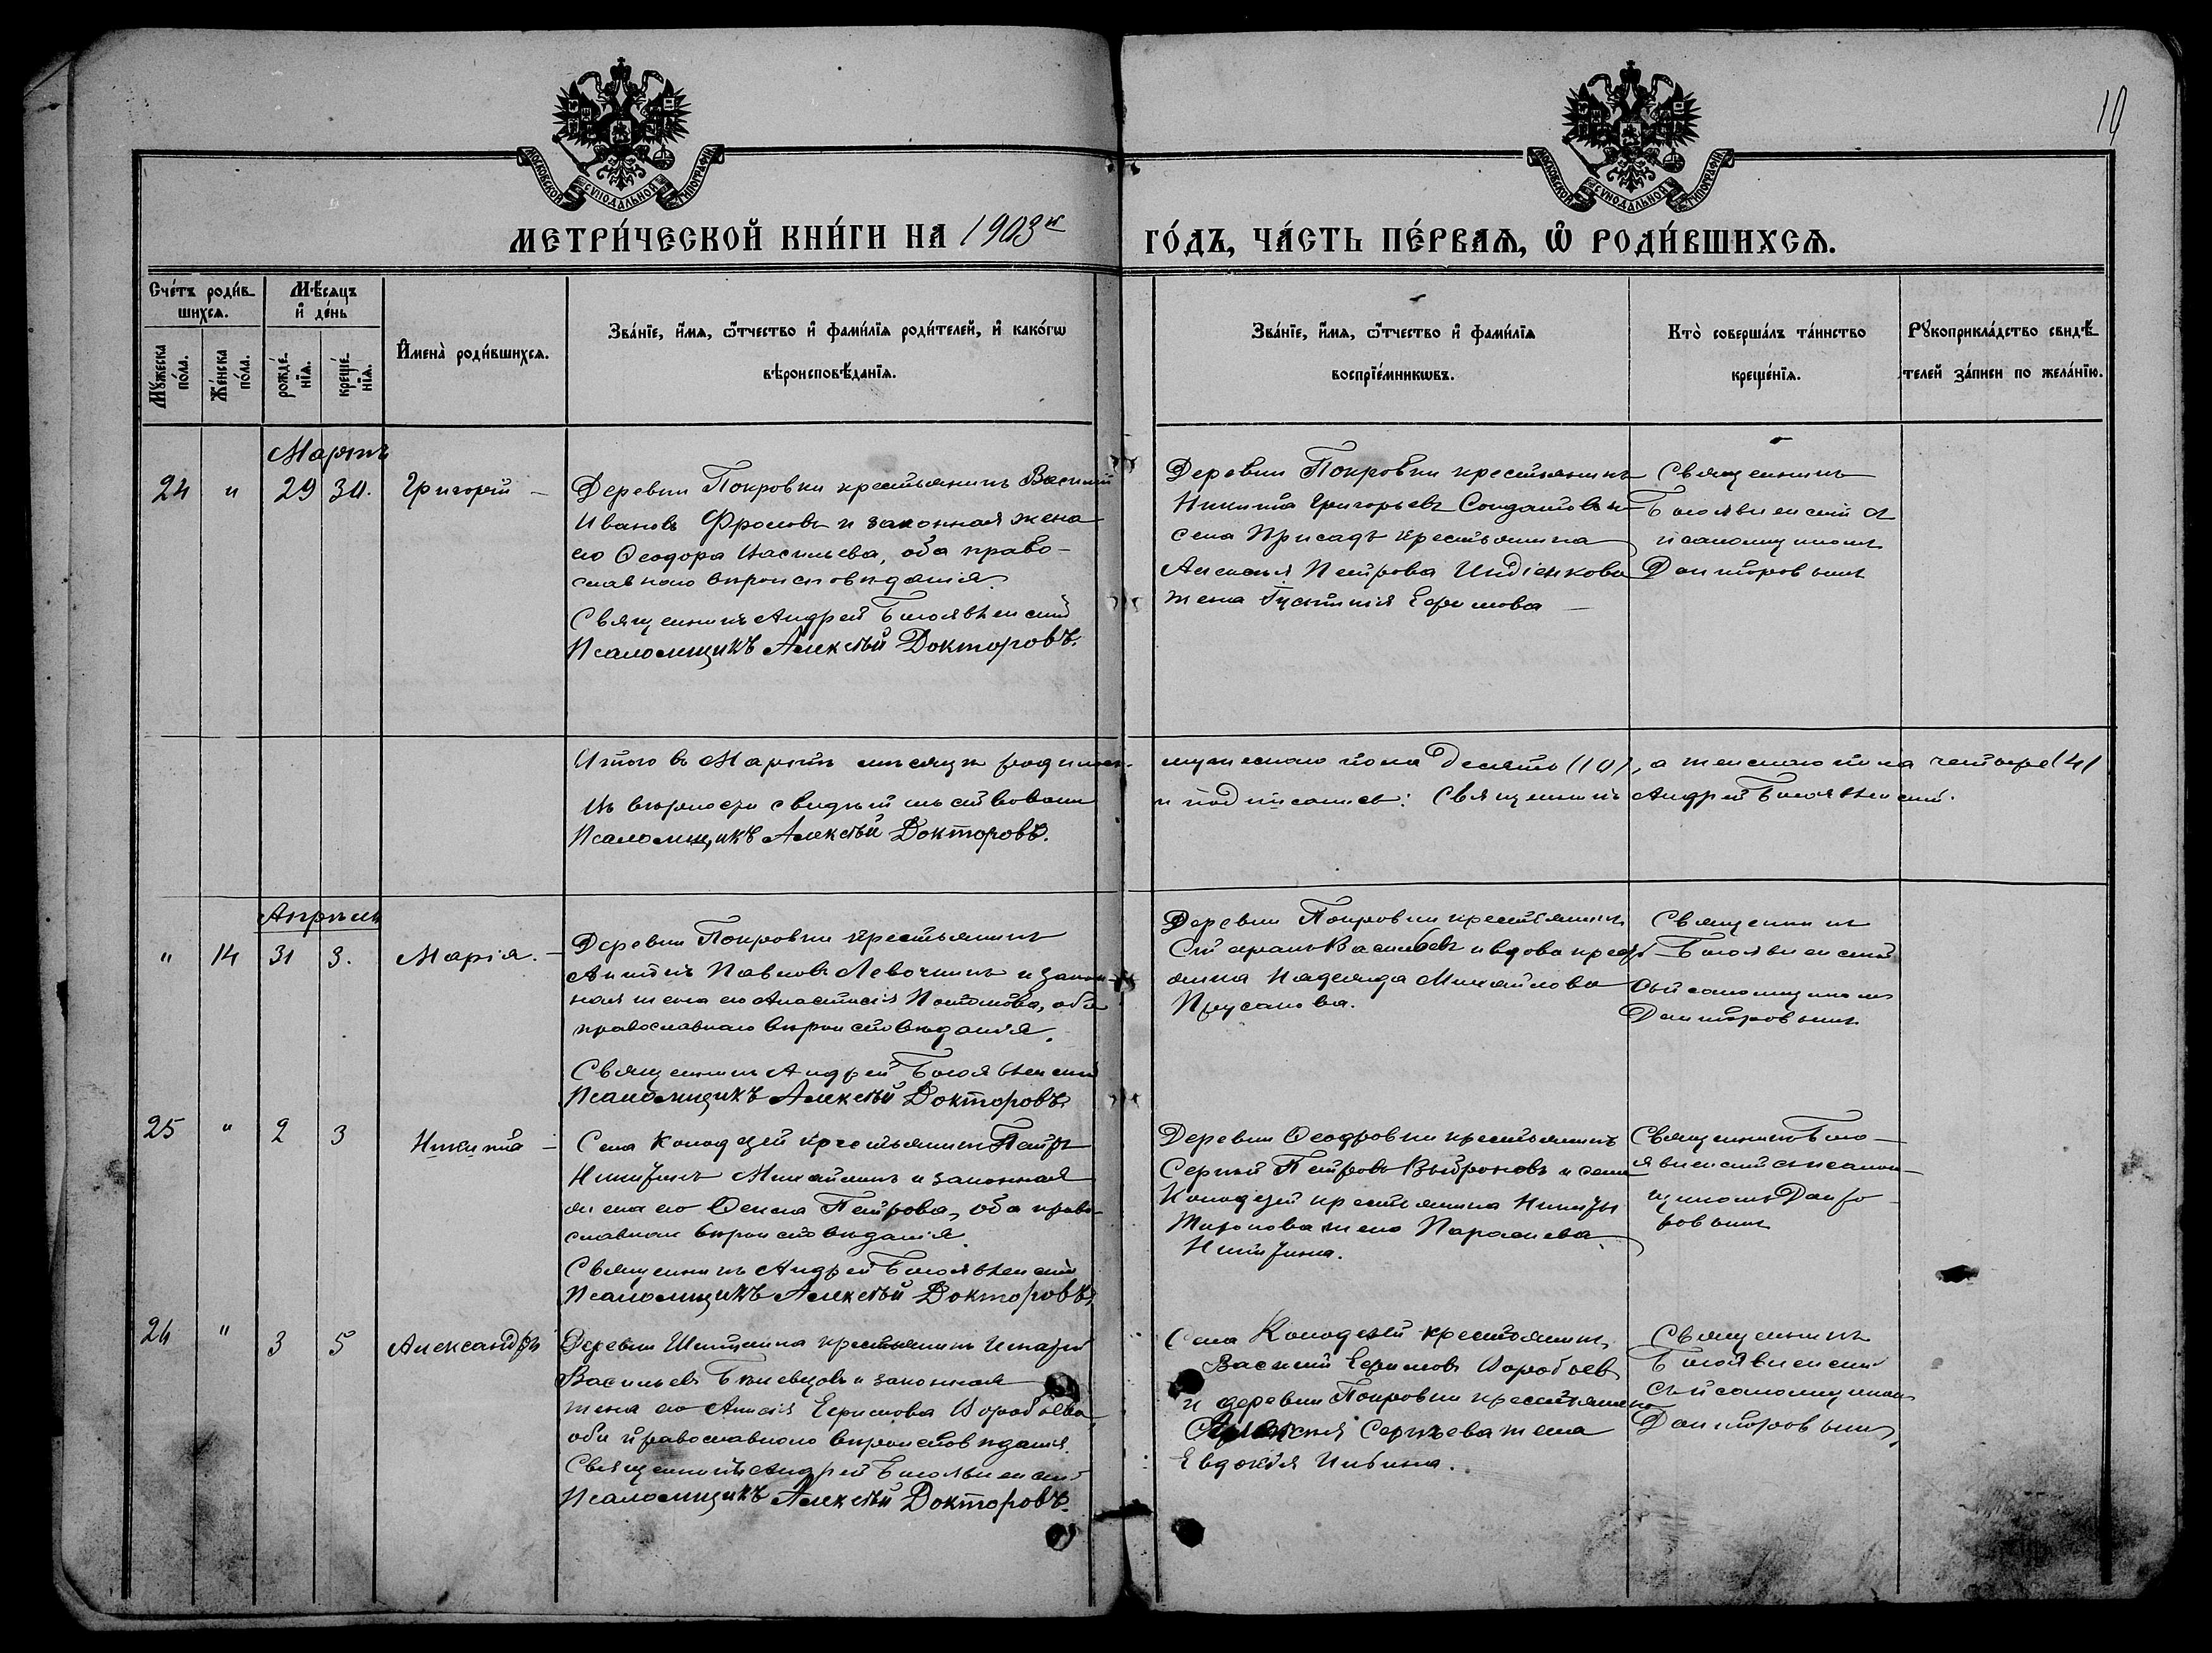 10
МОСКОВСКОЙ СУНОДАЛЬНОЙ ТИПОГРАФІИ
МОСКОВСКОЙ СУНОДАЛЬНОЙ ТИПОГРАФІИ
МЕТРИ́ЧЕСКОЙ КНИ́ГИ НА 1903й ГО́ДЪ, ЧА́СТЬ ПЕ́РВАѦ, Ѡ҆ РОДИ́ВШИХСѦ.
Сче́тъ роди́в-
шихсѧ.
Мꙋ́жеска по́ла.
Же́нска по́ла.
Мѣ́сѧцъ
и҆ де́нь
рожде́нїѧ.
креще́нїѧ.
И҆мена̀ роди́вшихсѧ.
Зва́нїе, и҆́мѧ, ѻ҆́тчество и҆ фами́лїѧ роди́телей, и҆ како́гѡ
вѣроисповѣ́данїѧ.
Зва́нїе, и҆́мѧ, ѻ҆́тчество и҆ фами́лїѧ
воспрїе́мникѡвъ.
Кто̀ соверша́лъ та́инство
креще́нїѧ.
Рꙋкоприкла́дство свидѣ́-
телей за́писи по жела́нїю.
Мартъ
24 " 29 30. Григорій –
Деревни Покровки крестьянинъ Василій
Ивановъ Фроловъ и законная жена
его Ѳеодора Васильева, оба право-
славнаго вѣроисповѣданія
Священникъ Андрей Богоявленскій
Псаломщикъ Алексѣй Докторовъ.
Деревни Покровки крестьянинъ
Никита Григорьевъ и
села крестьянина
Алексѣя Петрова
жена Ефимова –
Священникъ
Богоявленскій съ
псаломщикомъ
Докторовымъ
Итого въ Мартѣ мѣсяцѣ родилось мужескаго пола десять (10), а женскаго пола четыре (4)
Въ вѣрности свидѣтельствовали и подписались: Священникъ Андрей Богоявленскій.
Псаломщикъ Алексѣй Докторовъ.
Апрѣль
" 14 31 3. Марія. –
Деревни Покровки крестьянинъ
Павловъ Левочкинъ и закон-
ная жена его Анастасія, оба
православнаго вѣроисповѣданія.
Священникъ Андрей Богоявленскій
Псаломщикъ Алексѣй Докторовъ
Деревни Покровки крестьянинъ
Васильевъ и вдова кресть-
янка Надежда Михайлова
Священникъ
Богоявленскій
съ псаломщикомъ
Докторовымъ
25 " 2 3 Никита –
Села Колодезей крестьянинъ Петръ
Никитинъ и законная
жена его Петрова, оба право-
славнаго вѣроисповѣданія.
Священникъ Андрей Богоявленскій
Псаломщикъ Алексѣй Докторовъ
Деревни Ѳеодоровки крестьянинъ
Сергѣй Петровъ и села
Колодезей крестьянина Никиты
жена
Никитина.
Священникъ Бого-
явленскій съ псалом-
щикомъ Докто-
ровымъ
26 " 3 5 Александръ
Деревни крестьянинъ
Васильевъ и законная
жена его Ефимова Воробьева
оба православнаго вѣроисповѣданія.
Священникъ Андрей Богоявленскій
Псаломщикъ Алексѣй Докторовъ.
Села Колодезей крестьянинъ
Василій Ефимовъ Воробьевъ
и деревни Покровки крестьянина
Сергѣева жена
Евдокія
Священникъ
Богоявленскій
съ псаломщикомъ
Докторовымъ